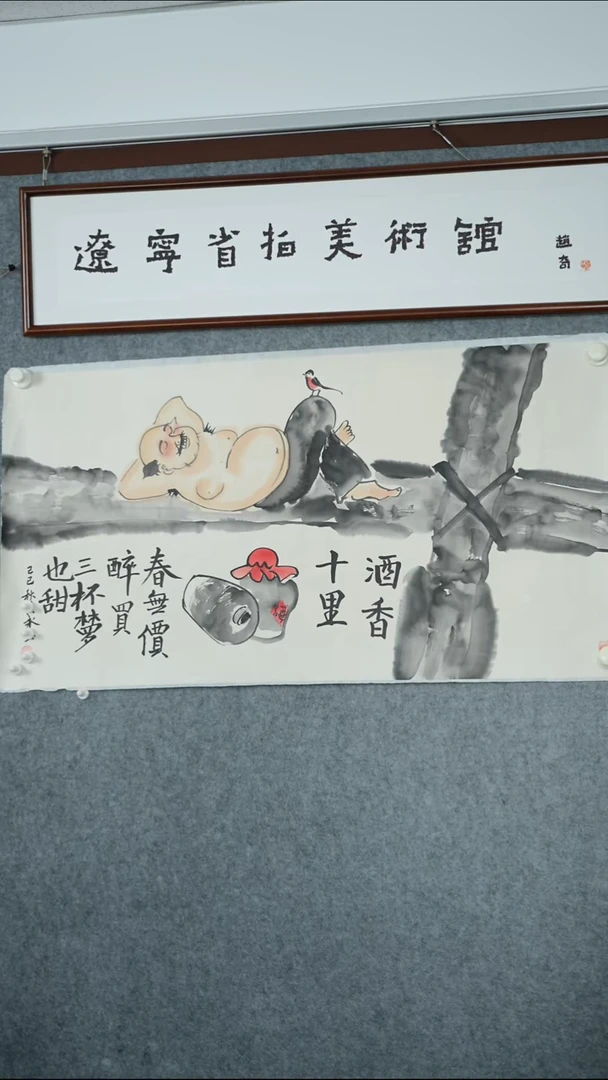 遼寧省拍美術館
趙奇
酒香
十里
春無價
醉買
三杯夢
也甜